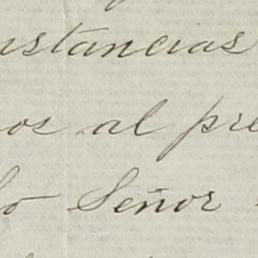 ustancias
os al pre
o Señor